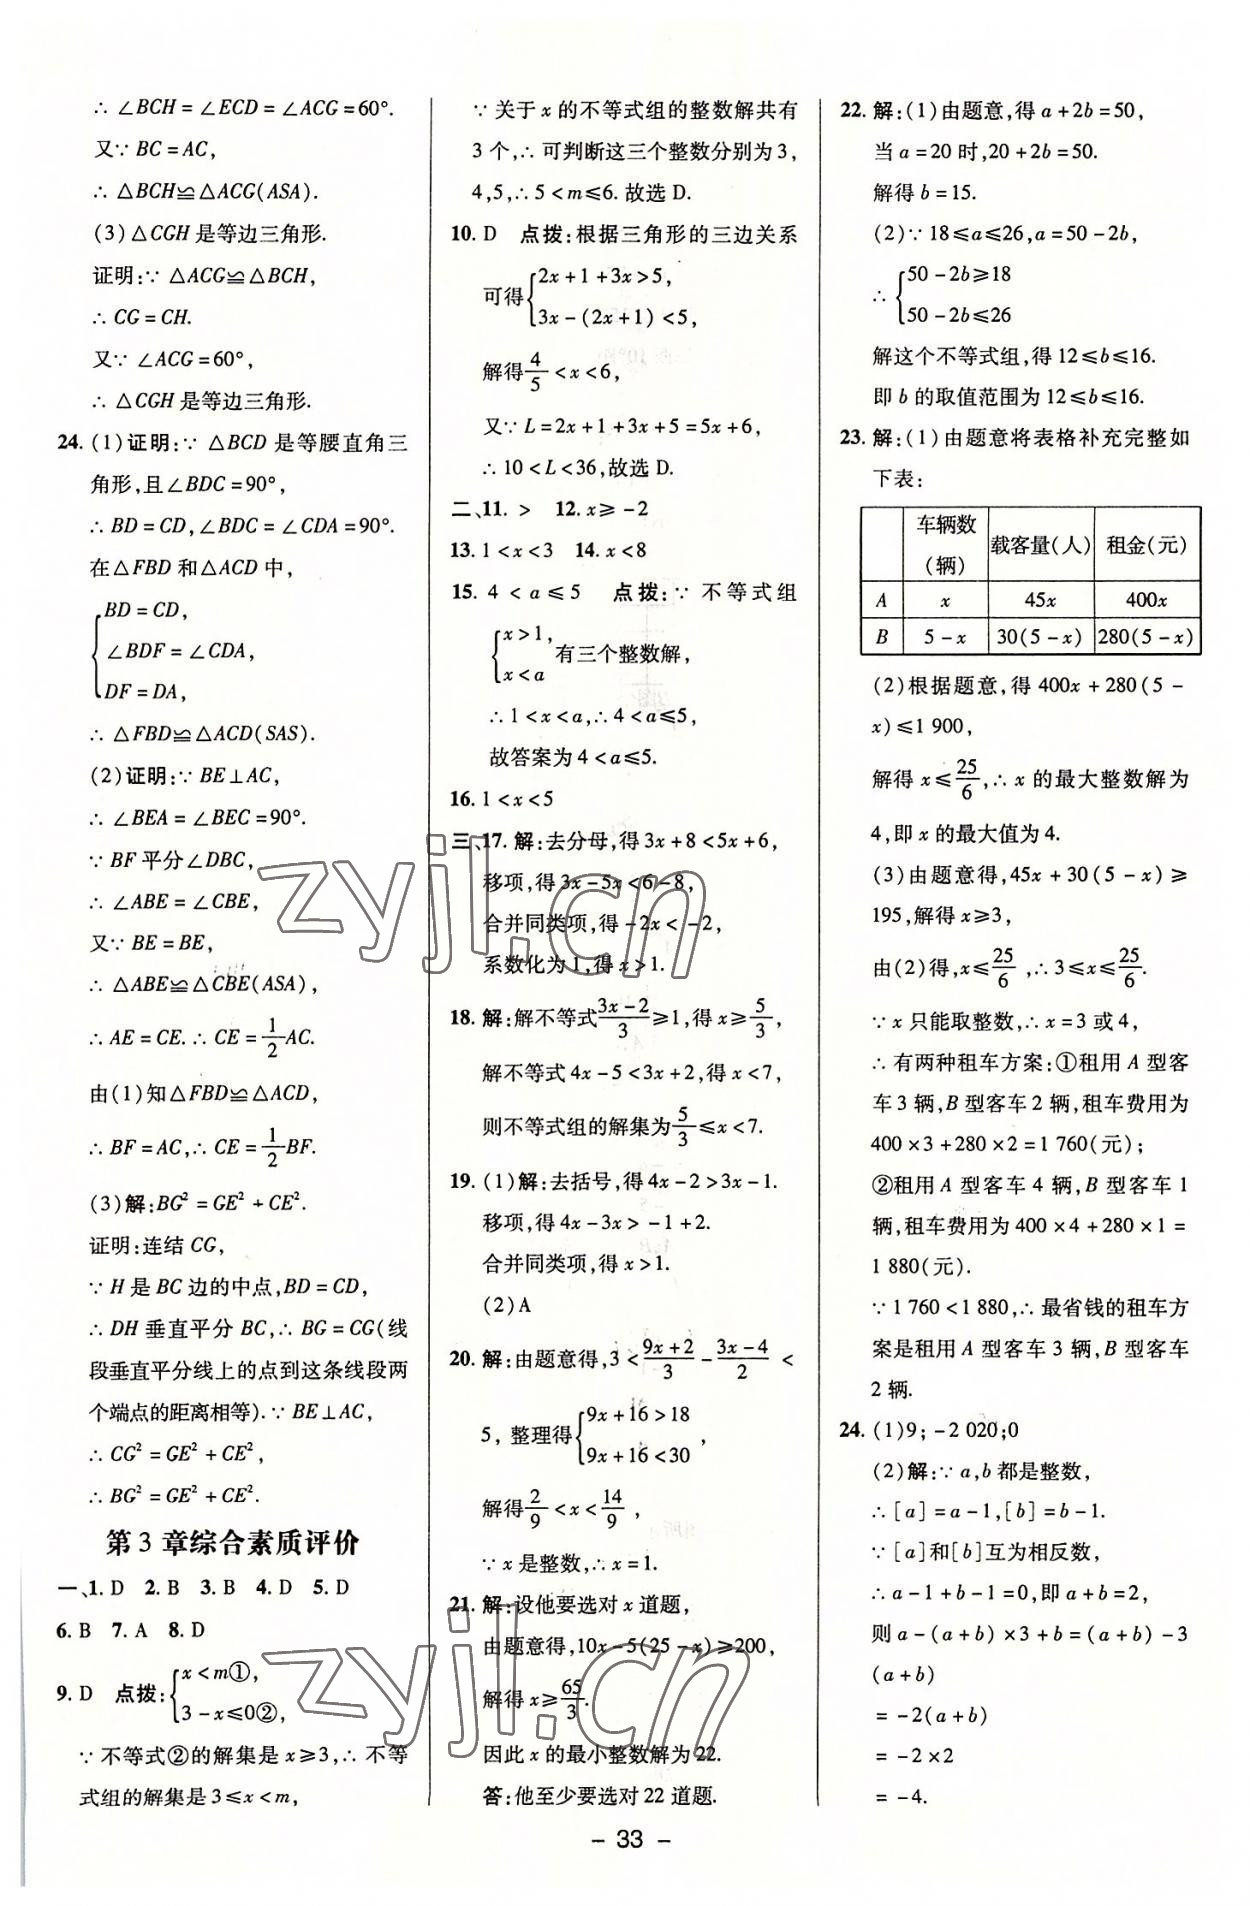 ∴ ∠BCH = ∠ECD = ∠ACG = 60°.
又∵ BC = AC,
∴ △BCH≌△ACG(ASA).
(3)△CGH 是等边三角形.
证明:∵ △ACG≌△BCH,
∴ CG = CH.
又∵ ∠ACG = 60°,
∴ △CGH 是等边三角形.
24. (1)证明:∵ △BCD 是等腰直角三
角形,且∠BDC = 90°,
∴ BD = CD,∠BDC = ∠CDA = 90°.
在△FBD 和△ACD 中,
{BD = CD,
∠BDF = ∠CDA,
DF = DA,
∴ △FBD≌△ACD(SAS).
(2)证明:∵ BE⊥AC,
∴ ∠BEA = ∠BEC = 90°.
∵ BF 平分∠DBC,
∴ ∠ABE = ∠CBE,
又∵ BE = BE,
∴ △ABE≌△CBE(ASA),
∴ AE = CE.∴ CE = 1/2 AC.
由(1)知△FBD≌△ACD,
∴ BF = AC,∴ CE = 1/2 BF.
(3)解:BG² = GE² + CE².
证明:连结 CG,
∵ H 是 BC 边的中点,BD = CD,
∴ DH 垂直平分 BC,∴ BG = CG(线
段垂直平分线上的点到这条线段两
个端点的距离相等).∵ BE⊥AC,
∴ CG² = GE² + CE²,
∴ BG² = GE² + CE².
第 3 章综合素质评价
一、1. D 2. B 3. B 4. D 5. D
6. B 7. A 8. D
9. D 点拨:{x < m①,
3 - x ≤ 0②,
∵ 不等式②的解集是 x ≥ 3,∴ 不等
式组的解集是 3 ≤ x < m,
∵ 关于 x 的不等式组的整数解共有
3 个,∴ 可判断这三个整数分别为 3,
4,5,∴ 5 < m ≤ 6. 故选 D.
10. D 点拨:根据三角形的三边关系
可得{2x + 1 + 3x > 5,
3x - (2x + 1) < 5,
解得 4/5 < x < 6,
又∵ L = 2x + 1 + 3x + 5 = 5x + 6,
∴ 10 < L < 36,故选 D.
二、11. > 12. x ≥ -2
13. 1 < x < 3 14. x < 8
15. 4 < a ≤ 5 点拨:∵ 不等式组
{x > 1,
x < a 有三个整数解,
∴ 1 < x < a,∴ 4 < a ≤ 5,
故答案为 4 < a ≤ 5.
16. 1 < x < 5
三、17. 解:去分母,得 3x + 8 < 5x + 6,
移项,得 3x - 5x < 6 - 8,
合并同类项,得 -2x < -2,
系数化为 1,得 x > 1.
18. 解:解不等式 (3x - 2)/3 ≥ 1,得 x ≥ 5/3,
解不等式 4x - 5 < 3x + 2,得 x < 7,
则不等式组的解集为 5/3 ≤ x < 7.
19. (1)解:去括号,得 4x - 2 > 3x - 1.
移项,得 4x - 3x > -1 + 2.
合并同类项,得 x > 1.
(2)A
20. 解:由题意得,3 < (9x + 2)/3 - (3x - 4)/2 <
5, 整理得{9x + 16 > 18
9x + 16 < 30,
解得 2/9 < x < 14/9,
∵ x 是整数,∴ x = 1.
21. 解:设他要选对 x 道题,
由题意得,10x - 5(25 - x) ≥ 200,
解得 x ≥ 65/3.
因此 x 的最小整数解为 22.
答:他至少要选对 22 道题.
22. 解:(1)由题意,得 a + 2b = 50,
当 a = 20 时,20 + 2b = 50.
解得 b = 15.
(2)∵ 18 ≤ a ≤ 26,a = 50 - 2b,
∴ {50 - 2b ≥ 18
50 - 2b ≤ 26
解这个不等式组,得 12 ≤ b ≤ 16.
即 b 的取值范围为 12 ≤ b ≤ 16.
23. 解:(1)由题意将表格补充完整如
下表:
车辆数(辆) 载客量(人) 租金(元)
A x 45x 400x
B 5 - x 30(5 - x) 280(5 - x)
(2)根据题意,得 400x + 280(5 -
x) ≤ 1 900,
解得 x ≤ 25/6,∴ x 的最大整数解为
4,即 x 的最大值为 4.
(3)由题意得,45x + 30(5 - x) ≥
195,解得 x ≥ 3,
由(2)得,x ≤ 25/6,∴ 3 ≤ x ≤ 25/6.
∵ x 只能取整数,∴ x = 3 或 4,
∴ 有两种租车方案:①租用 A 型客
车 3 辆,B 型客车 2 辆,租车费用为
400 × 3 + 280 × 2 = 1 760(元);
②租用 A 型客车 4 辆,B 型客车 1
辆,租车费用为 400 × 4 + 280 × 1 =
1 880(元).
∵ 1 760 < 1 880,∴ 最省钱的租车方
案是租用 A 型客车 3 辆,B 型客车
2 辆.
24. (1)9; -2 020;0
(2)解:∵ a,b 都是整数,
∴ [a] = a - 1,[b] = b - 1.
∵ [a]和[b]互为相反数,
∴ a - 1 + b - 1 = 0,即 a + b = 2,
则 a - (a + b) × 3 + b = (a + b) - 3
(a + b)
= -2(a + b)
= -2 × 2
= -4.
- 33 -
zyjl.cn
zyjl.cn